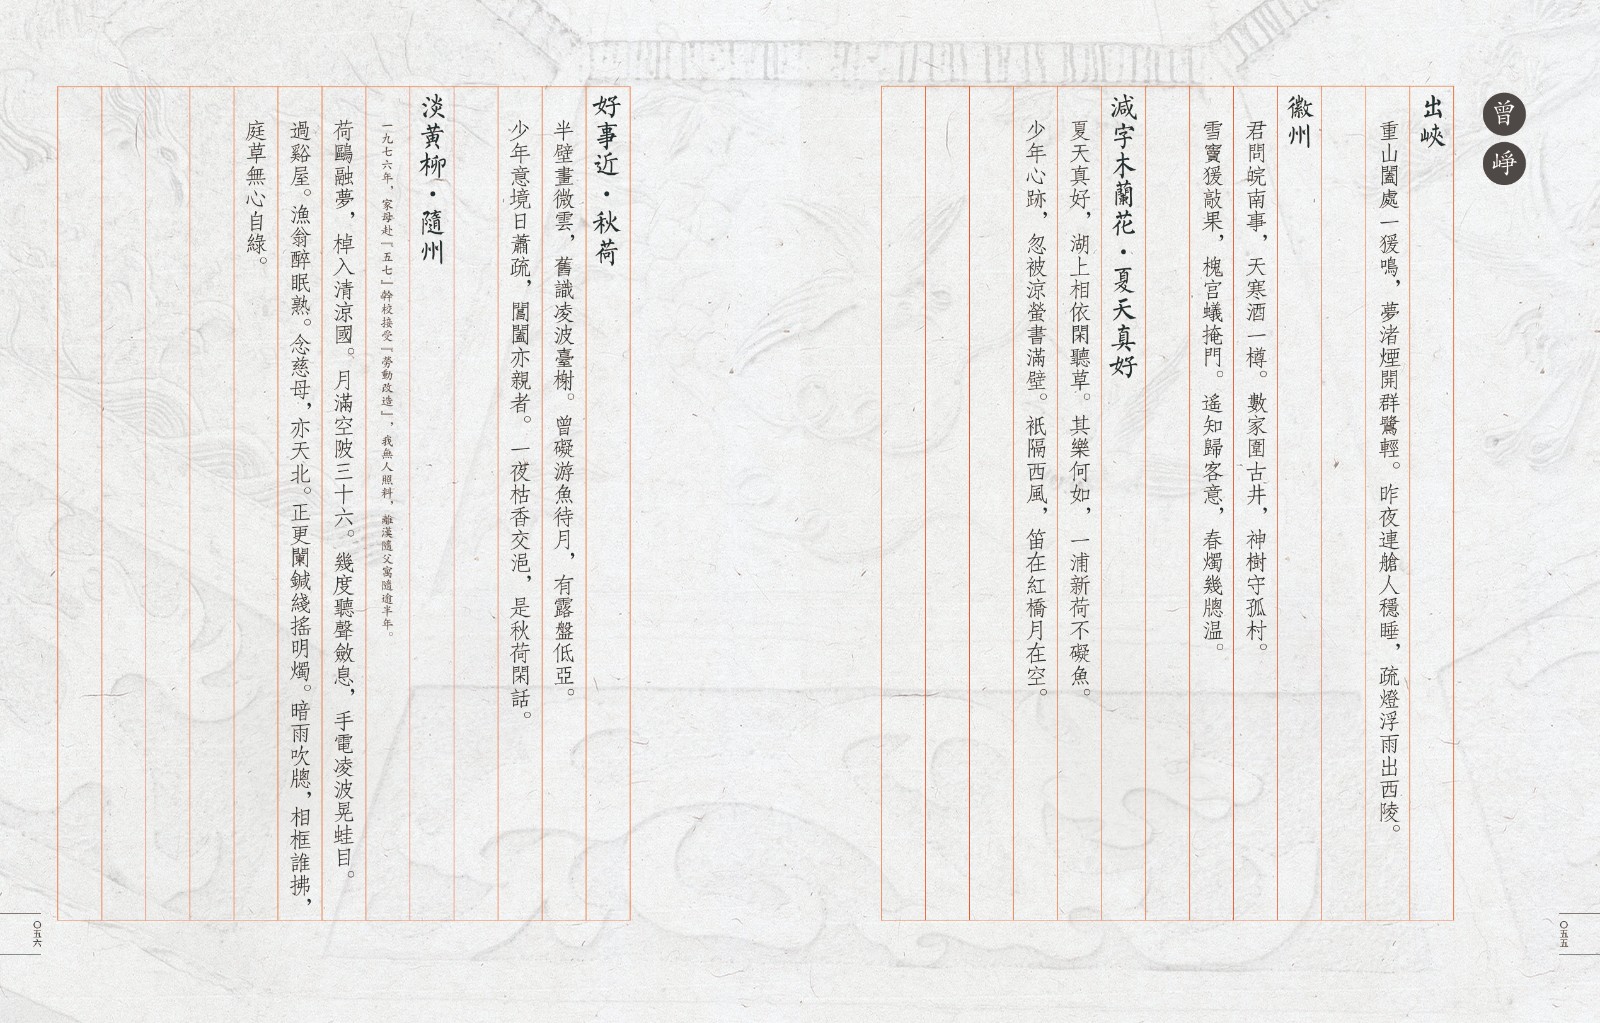 曾崢
出峽
重山闔處一猨鳴，夢渚煙開群鷺輕。昨夜連艙人穩睡，疏燈浮雨出西陵。
徽州
君問皖南事，天寒酒一樽。數家圍古井，神樹守孤村。
雪竇猨敲果，槐宮蟻掩門。遙知歸客意，春燭幾牕温。
減字木蘭花・夏天真好
夏天真好，湖上相依閑聽草。其樂何如，一浦新荷不礙魚。
少年心跡，忽被涼螢書滿壁。衹隔西風，笛在紅橋月在空。
〇五五
好事近・秋荷
半壁畫微雲，舊識凌波臺榭。曾礙游魚待月，有露盤低亞。
少年意境日蕭疏，閶闔亦親者。一夜枯香交浥，是秋荷閑話。
淡黃柳・隨州
一九七六年，家母赴『五七』幹校接受『勞動改造』，我無人照料，離漢隨父寓隨逾半年。
荷鷗融夢，棹入清涼國。月滿空陂三十六。幾度聽聲斂息，手電凌波晃蛙目。
過谿屋。漁翁醉眠熟。念慈母，亦天北。正更闌鍼綫搖明燭。暗雨吹牕，相框誰拂，
庭草無心自綠。
〇五六